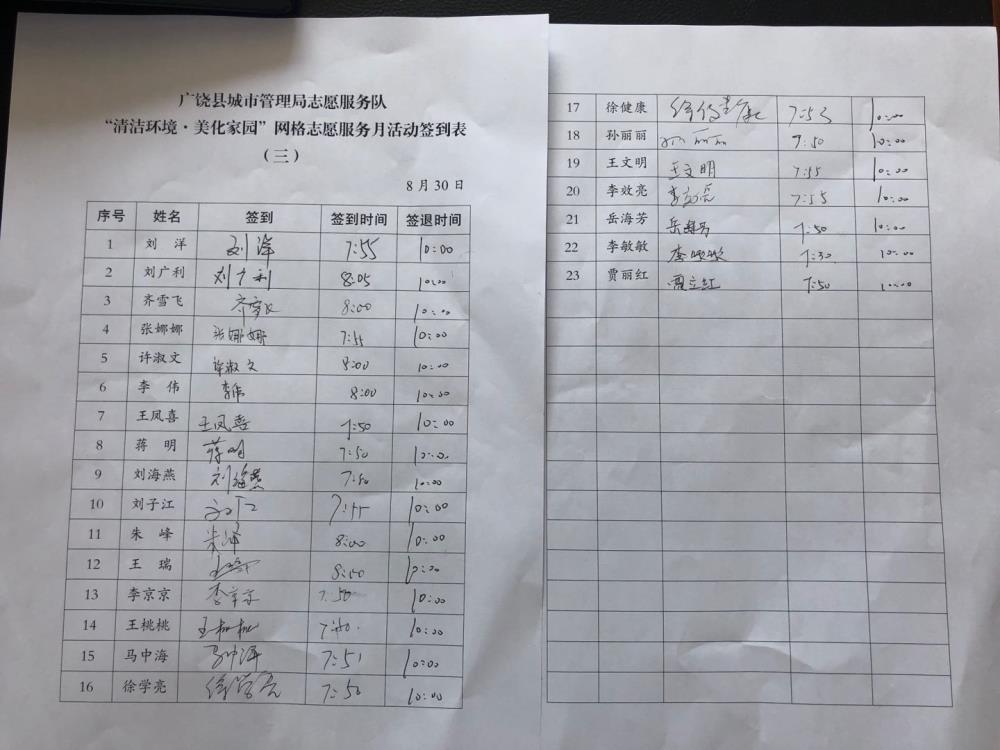 广饶县城市管理局志愿服务队
“清洁环境·美化家园”网格志愿服务月活动签到表
（三）
8月30日
序号 姓名 签到 签到时间 签退时间
1 刘 洋 刘洋 7:55 10:00
2 刘广利 刘广利 8:05 10:00
3 齐雪飞 齐雪飞 8:00 10:00
4 张娜娜 张娜娜 7:55 10:00
5 许淑文 许淑文 8:00 10:00
6 李 伟 李伟 8:00 10:00
7 王凤喜 王凤喜 7:50 10:00
8 蒋 明 蒋明 7:50 10:00
9 刘海燕 刘海燕 7:50 10:00
10 刘子江 7:55 10:00
11 朱 峰 朱峰 8:00 10:00
12 王 瑞 8:00 10:00
13 李京京 李京京 7:50 10:00
14 王桃桃 王桃桃 7:50 10:00
15 马中海 马中海 7:51 10:00
16 徐学亮 徐学亮 7:50 10:00
17 徐健康 徐健康 7:53 10:00
18 孙丽丽 孙丽丽 7:50 10:00
19 王文明 王文明 7:55 10:00
20 李效亮 李效亮 7:55 10:00
21 岳海芳 岳海芳 7:50 10:00
22 李敏敏 李敏敏 7:30 10:00
23 贾丽红 贾立红 7:50 10:00